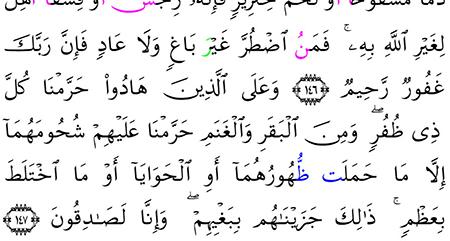 دَمًا مَّسْفُوحًا أَوْ لَحْمَ خِنزِيرٍ فَإِنَّهُۥ رِجْسٌ أَوْ فِسْقًا أُهِلَّ
لِغَيْرِ ٱللَّهِ بِهِۦ ۚ فَمَنُ ٱضْطُرَّ غَيْرَ بَاغٍ وَلَا عَادٍ فَإِنَّ رَبَّكَ
غَفُورٌ رَّحِيمٌ ١٤٦ وَعَلَى ٱلَّذِينَ هَادُواْ حَرَّمْنَا كُلَّ
ذِى ظُفُرٍ ۖ وَمِنَ ٱلْبَقَرِ وَٱلْغَنَمِ حَرَّمْنَا عَلَيْهِمْ شُحُومَهُمَآ
إِلَّا مَا حَمَلَت ظُّهُورُهُمَآ أَوِ ٱلْحَوَايَآ أَوْ مَا ٱخْتَلَطَ
بِعَظْمٍ ۚ ذَٰلِكَ جَزَيْنَـٰهُم بِبَغْيِهِمْ ۖ وَإِنَّا لَصَـٰدِقُونَ ١٤٧